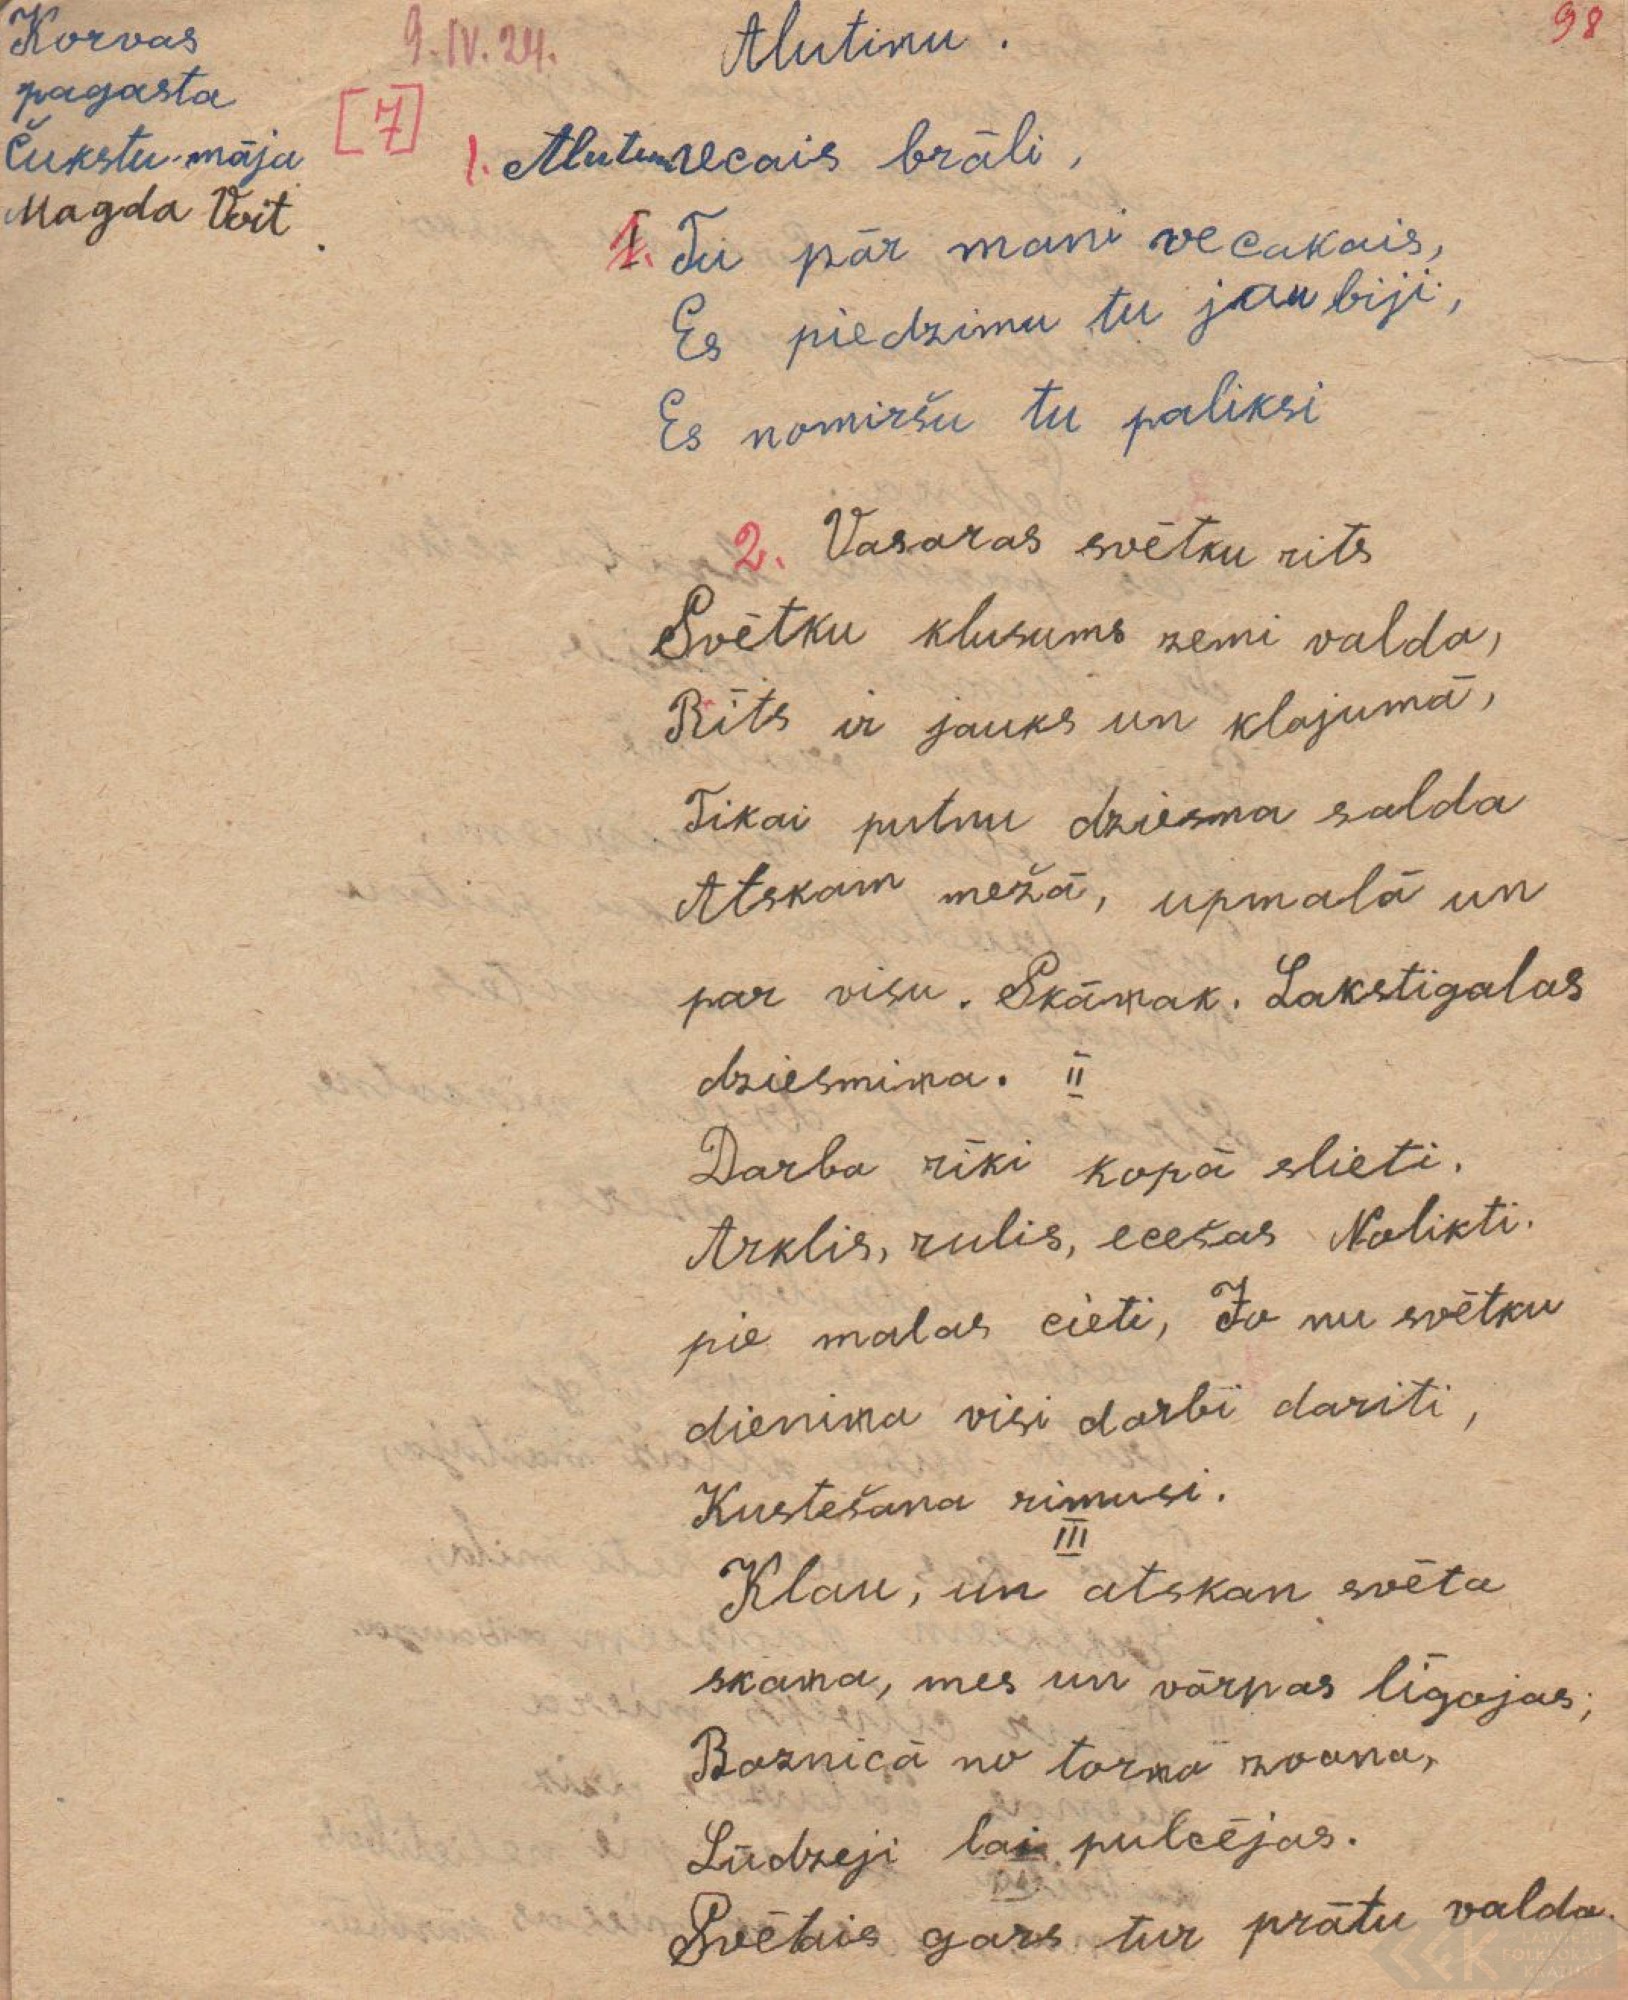 Korvas
pagasta
Čukstu-māja
Magda Voit.
9.IV.24.
[7]
98
Alutiņu.
1. Alutiņ vecais brāli,
1. Tu pār mani vecakais,
Es piedzimu tu jau biji,
Es nomiršu tu paliksi
2. Vasaras svētku rits
Svētku klusums zemi valda,
Rīts ir jauks un klajumā,
Tikai putnu dziesma salda
Atskaņ mežā, upmalā un
par visu. Skāņak. Lakstigalas
dziesmiņa. II
Darba rīki kopā slieti.
Arklis, rulis, ecešas Nolikti.
pie malas cieti, Jo nu svētku
dieniņa visi darbi dariti,
Kustešana rimusi.
III
Klau, un atskan svēta
skaņa, mes un vārpas līgojas;
Baznicā no torņa zvana,
Lūdzeji lai pulcējas.
Svētais gars tur prātu valda.
LATVIEŠU
FOLKLORAS
KRĀTUVE